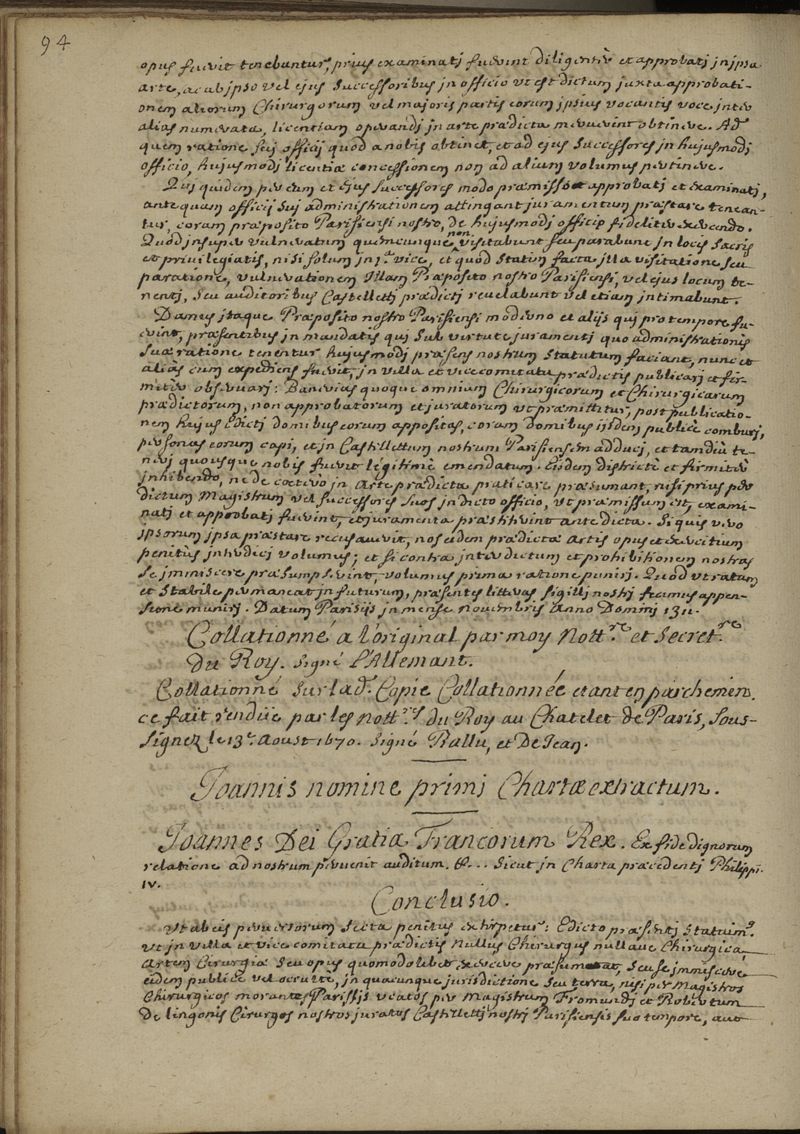 94
opus fuerit tenebuntur, prius examinatj fuerint diligenter et approbatj jn jpsa
arte, ac ab jpso vel ejus Successoribus jn officio vt est dictum juxta approbati-
onem aliorum Chirurgorum vel majoris partis eorum jpsius vocantis voce jnter
alias numerata, licentiam operandj jn arte prædicta meruerint obtinere. Ad
quem ratione suj officij quod a nobis obtinet, et ad ejus Successores jn hujusmodj
officio, hujusmodj licentiæ concessionem non ad alium volumus pertinere.
Quj quidem per eum et ejus Successores modo præmisso approbatj et examinatj,
antequam officij suj administrationem attingant juramentum præstare tenean-
tur, coram præposito Parisiensi nostro, de hujusmodj officio fideliter exercendo.
Quod jnsuper vulneratum quemcunque non visitabunt seu parabunt jn locis sacris
et priuilegiatis, nisi solum jn 1.ª vice, et quod statim facta jlla visitatione seu
paratione, vulnerationem Illam Præposito nostro Parisiensi, vel ejus locum te-
nentj, seu auditoribus Castelletj prædictj reuelabunt vel etiam jntimabunt.
Damus jtaque Præposito nostro Parisiensi moderno et alijs quj pro tempore fu-
erint, præsentibus jn mandatis quj sub virtute juramentj quo administrationis
suæ ratione tenentur hujusmodj præsens nostrum statutum faciant, nunc et
aliàs cum expediens fuerit, jn villa et vicecomitatu prædictis publicarj et fir-
miter obseruarj: Bannerias quoque omnium Chirurgicorum et Chirurgicarum
prædictorum, non approbatorum et juratorum vt præmittitur, post publicatio-
nem hujus Edictj domibus eorum appositas, coram domibus iisdem publicè comburj,
personas eorum capi, et jn Castellettum nostrum Parisiensem adducj, et tandiu te-
nerj quousque nobis fuerit legitimè emendatum. Eisdem districtè et firmiter
jnhibendo, ne de cætero jn arte prædicta praticare præsumant, nisi prius per
dictum Magistrum vel successores suos jn dicto officio, vt præmissum est, exami-
natj et approbatj fuerint, et juramenta præstiterint antedicta. Si quis vero
jpsorum jpsa præstare recusauerit, nos eidem prædictæ artis opus et exercitium
penitus jnterdicj volumus; et si contra jnterdictum et prohibitionem nostras
se jmmiscere præsumpserint, volumus prima ratione punirj. Quod vt ratum
et stabile permaneat jn futurum, præsentes litteras sigillj nostrj fecimus appen-
sione munirj. Datum Parisijs jn mense Nouembris Anno Dominj 1311.
Collationné a l'original par moy Nott.re et Secret.re
Du Roy. Signé L'Allemant.
Collationné sur lad.e Copie Collationnée etant en parchemin,
ce fait rendüe par les nott.res du Roy au Chatelet de Paris, sous-
signez le 13.e aoust 1670. Signé Rallu, et De Jean.
Joannis nomine primj Chartæ extractum.
Joannes Dei Gratia Francorum Rex. Ex fide dignorum
relatione ad nostrum peruenit auditum. &... Sicut jn Charta præcedentj Philippi.
IV.
Conclusio.
Vt ab eis peruersorum secta penitus extirpetur: Edicto præsentj statuim.s
Vt jn villa et vicecomitatu prædictis nullus Chirurgus nullaue Chirurgica
artem Cirurgiæ seu opus quomodolibet exercere præsumat, seu se jmmiscere
eidem publicè vel occultè, jn quacunque jurisdictione seu terra, nisi per Magistros
Chirurgicos morantes Parisijs vocatos per Magistrum Fromundj et Robertum
De lingonis Cirurgos nostros juratos Castellettj nostrj Parisiensis suo tempore, aut